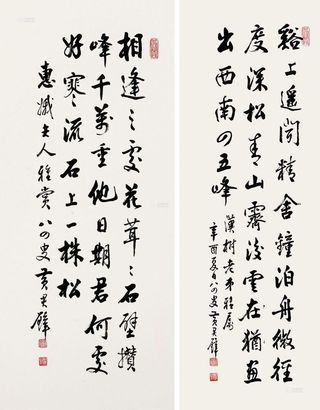 谿上遥聞精舍鐘泊舟微徑
度深松青山霽後雲在猶画
出西南四五峰
漢樹老弟雅屬
辛酉夏日八四叟黃君璧
相逢之處花茸〻石壁攢
峰千萬重他日期君何處
好寒流石上一株松
惠孅夫人雅賞 八四叟黃君璧